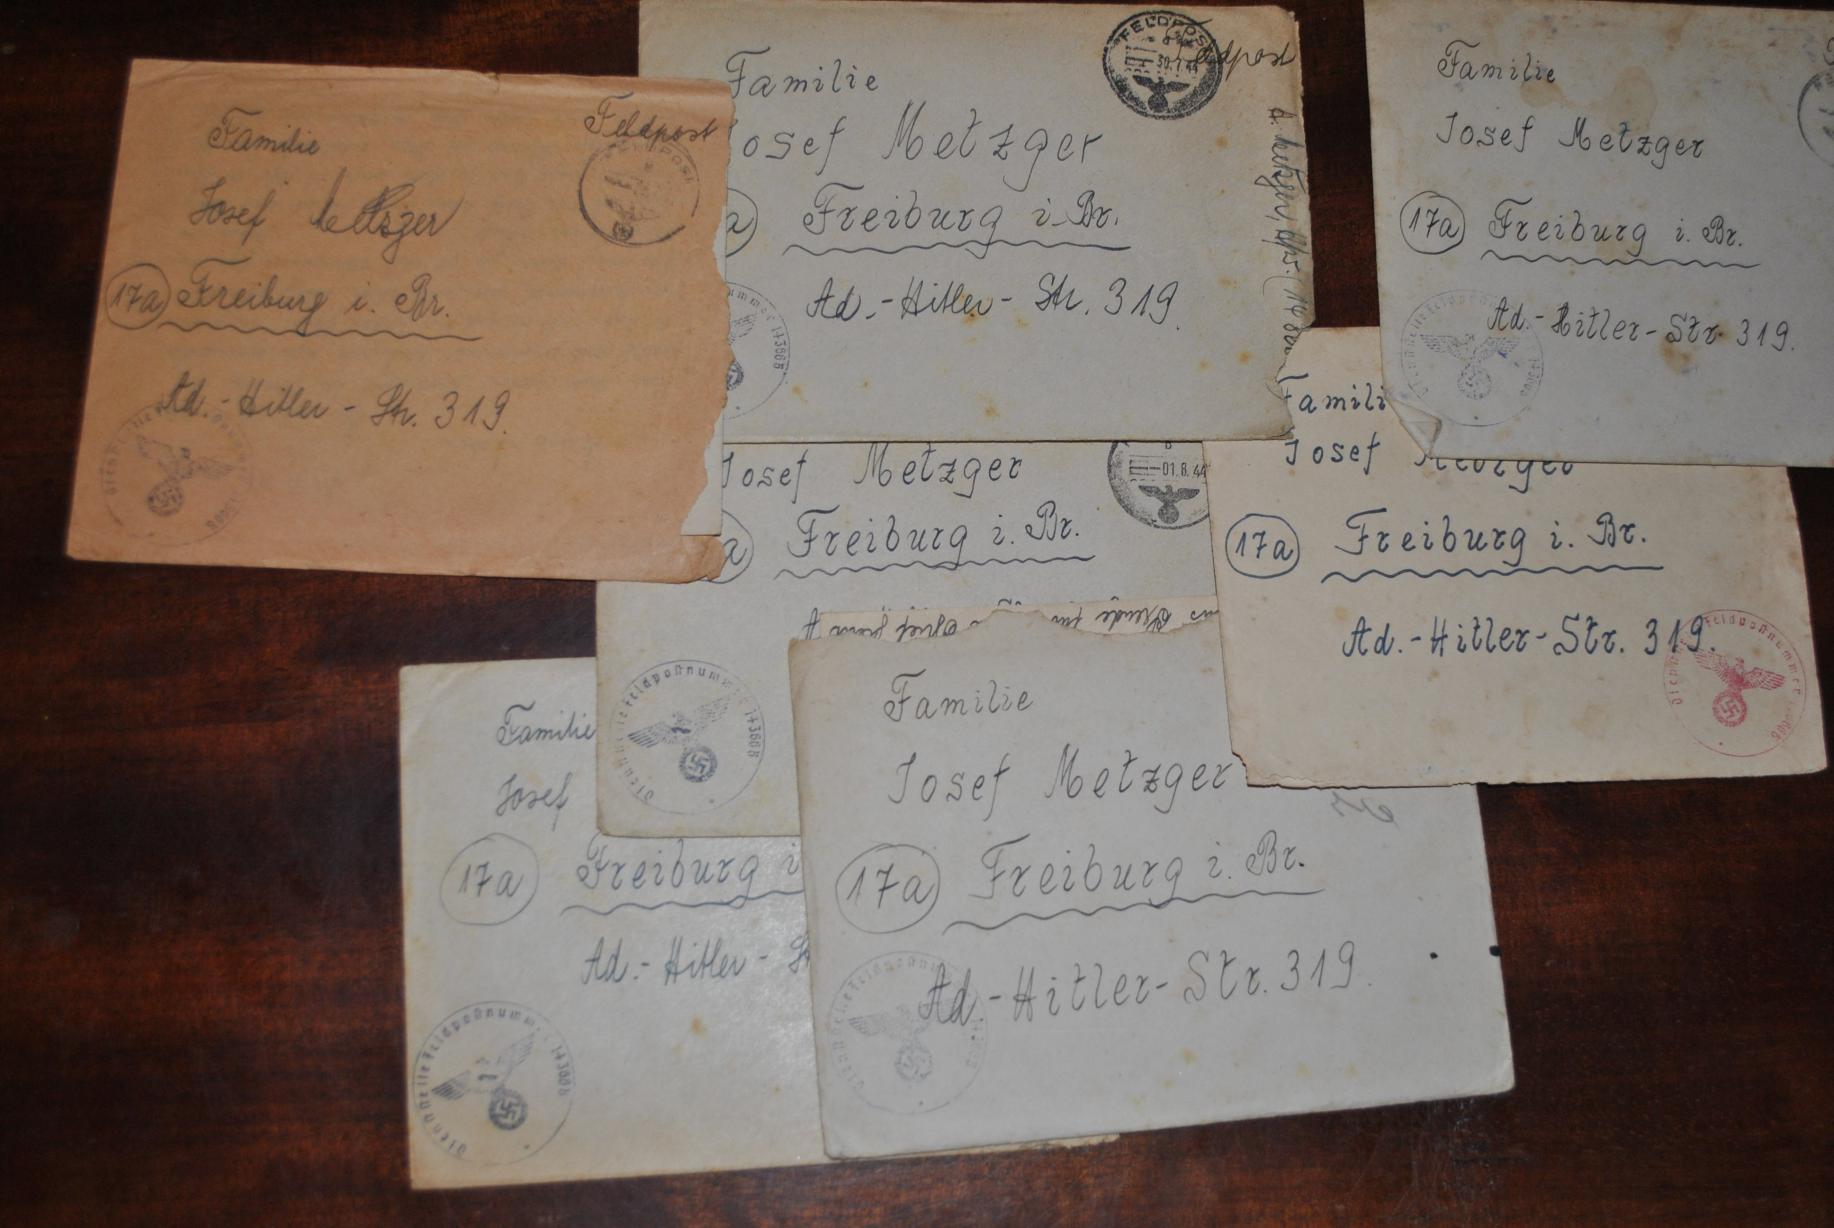 Familie
Feldpost
Josef Metzger
17a Freiburg i. Br.
Ad.-Hitler-Str. 319.
Familie
Josef Metzger
Freiburg i. Br.
Ad.-Hitler-Str. 319.
FELDPOST
30.7.44
Familie
Josef Metzger
17a Freiburg i. Br.
Ad.-Hitler-Str. 319.
Josef Metzger
Freiburg i. Br.
01.8.44
Feldpostnummer 43668
Famili
Josef Metzger
17a Freiburg i. Br.
Ad.-Hitler-Str. 319.
Feldpostnummer
Familie
Josef
17a Freiburg i
Ad.-Hitler-
Feldpostnummer 43668
Familie
Josef Metzger
17a Freiburg i. Br.
Ad.-Hitler-Str. 319.